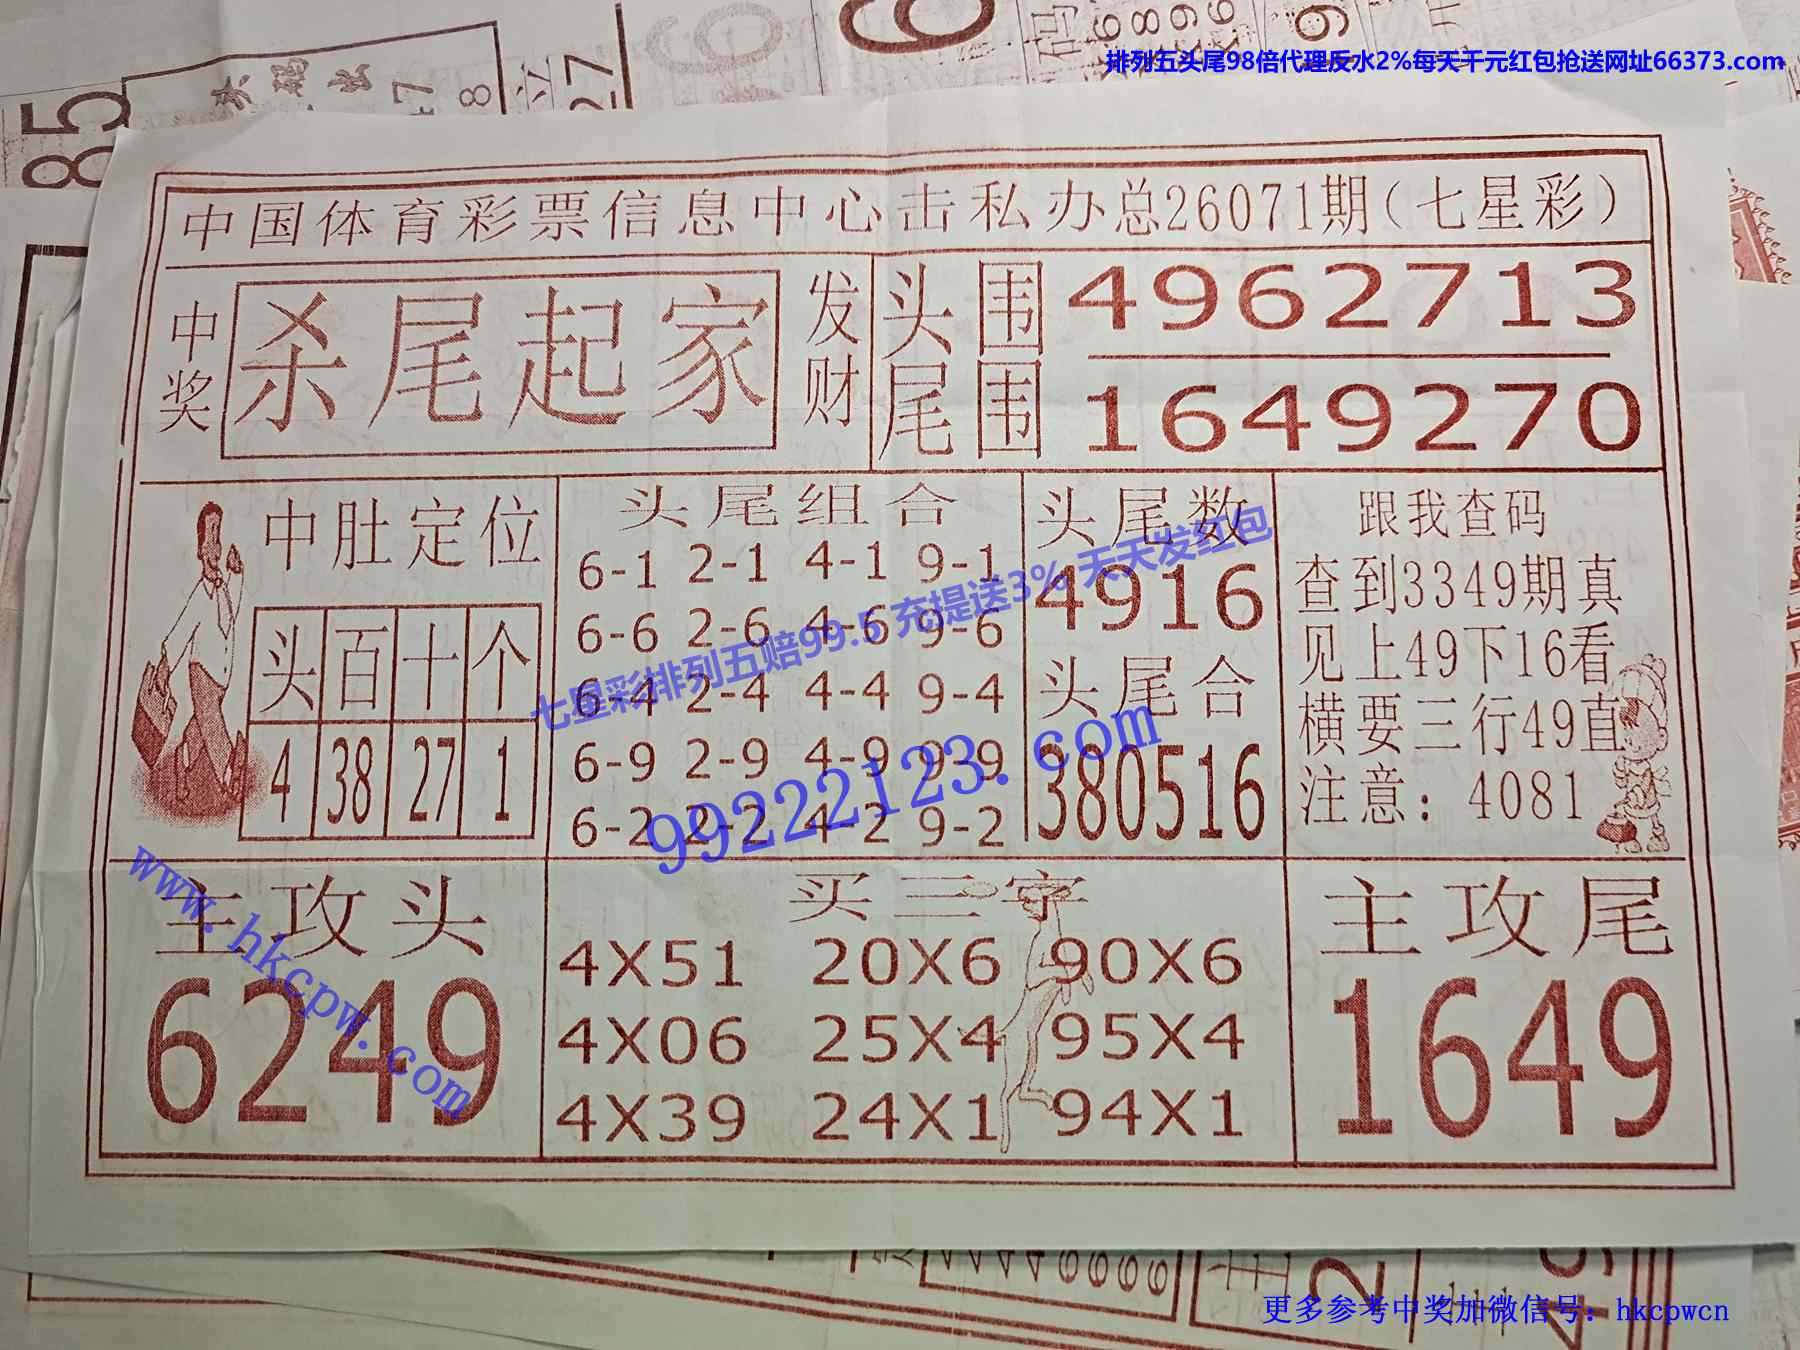 排列五头尾98倍代理反水2%每天千元红包抢送网址66373.com
中国体育彩票信息中心击私办总26071期(七星彩)
中奖
杀尾起家
发财
头围 4962713
尾围 1649270
中肚定位
头 百 十 个
4 38 27 1
头尾组合
6-1 2-1 4-1 9-1
6-6 2-6 4-6 9-6
6-4 2-4 4-4 9-4
6-9 2-9 4-9 9-9
6-2 2-2 4-2 9-2
头尾数
4916
头尾合
380516
跟我查码
查到3349期真
见上49下16看
横要三行49直
注意：4081
七星彩排列五赔99.5 充提送3% 天天发红包
99222123.com
www.hkcpw.com
主攻头
6249
买三字
4X51 20X6 90X6
4X06 25X4 95X4
4X39 24X1 94X1
主攻尾
1649
更多参考中奖加微信号：hkcpwcn